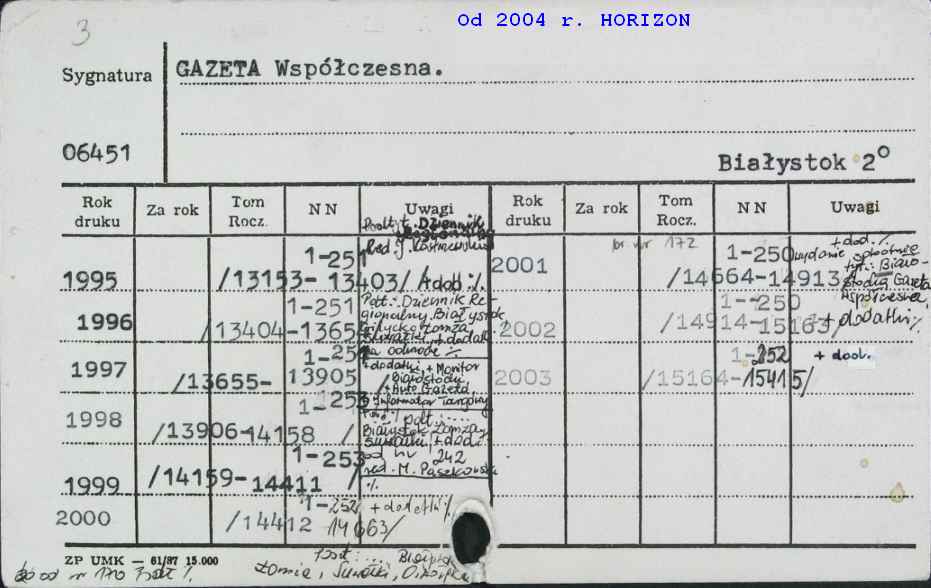 3
Od 2004 r. HORIZON
Sygnatura
GAZETA Współczesna.
06451
Białystok 2°
Rok druku
Za rok
Tom Rocz.
NN
Uwagi
Rok druku
Za rok
Tom Rocz.
NN
Uwagi
podtyt. Dziennik
Red. J.
1995 /13153-13403/ 1-251 + dod. %.
1996 /13404- 1-251
Podt.: Dziennik Re-
gionalny. Białystok
Łomża
+ dodat.
1997 /13655-13905 / 1-251
+ dodatki, + Monitor
Białostocki,
+ Auto Gazeta,
+ Informator Targowy
1998 /13906-14158 / 1-253
podt.: ....
Białystok Łomża
Suwałki, + dod.
od nr 242
red. M. Paszkowska
1999 /14159-14411 / 1-253
%.
2000 /14412 14663/ 1-252 + dodatki %
podt: ...
Łomża, Suwałki,
2001 /14664-14913/ 1-250
br nr 172
+ dod. %
tyt.: Biało-
stocka Gazeta
Współczesna,
2002 /14914-15163/ 1--250 + dodatki %
2003 /15164-15415/ 1-252 + dod.
ZP UMK — 61/87 15.000
od nr 170